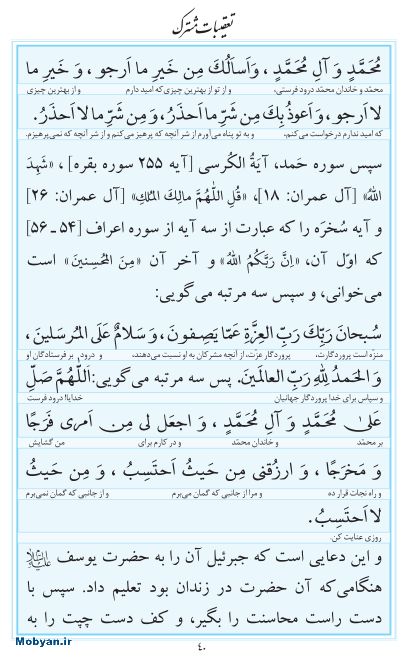 تعقیبات مشترک
مُحَمَّدٍ وَ آلِ مُحَمَّدٍ ، وَ اَسأَلُکَ مِن خَیرِ ما اَرجو ، وَ خَیرِ ما
محمّد و خاندان محمّد درود فرستی، و از تو از بهترین چیزی که امید دارم و از بهترین چیزی
لا اَرجو ، وَ اَعوذُ بِکَ مِن شَرِّ ما اَحذَرُ ، وَ مِن شَرِّ ما لا اَحذَرُ.
که امید ندارم درخواست می‌کنم، و به تو پناه می‌آورم از شرّ آنچه که پرهیز می‌کنم و از شرّ آنچه که نمی‌پرهیزم.
سپس سوره حَمد، آیَةُ الکُرسی [آیه ۲۵۵ سوره بقره] ، «شَهِدَ
اللهُ» [آل عمران: ۱۸]، «قُلِ اللّٰهُمَّ مالِکَ المُلکِ» [آل عمران: ۲۶]
و آیه سُخرَه را که عبارت از سه آیه از سوره اعراف [۵۴ ـ ۵۶]
که اوّل آن، «اِنَّ رَبَّکُمُ اللهُ» و آخر آن «مِنَ المُحسِنینَ» است
می‌خوانی، و سپس سه مرتبه می‌گویی:
سُبحانَ رَبِّکَ رَبِّ العِزَّةِ عَمّا یَصِفونَ ، وَ سَلامٌ عَلَی المُرسَلینَ ،
منزّه است پروردگارت، پروردگار عزّت، از آنچه مشرکان به او نسبت می‌دهند، و درود بر فرستادگان او
وَ الحَمدُ لِلّٰهِ رَبِّ العالَمینَ. پس سه مرتبه می‌گویی: اَللّٰهُمَّ صَلِّ
و سپاس برای خدا پروردگار جهانیان خدایا! درود فرست
عَلیٰ مُحَمَّدٍ وَ آلِ مُحَمَّدٍ ، وَ اجعَل لی مِن اَمری فَرَجًا
بر محمّد و خاندان محمّد و در کارم برای من گشایش
وَ مَخرَجًا ، وَ ارزُقنی مِن حَیثُ اَحتَسِبُ ، وَ مِن حَیثُ
و راه نجات قرار ده و مرا از جانبی که گمان می‌برم و از جانبی که گمان نمی‌برم
لا اَحتَسِبُ.
روزی عنایت کن.
و این دعایی است که جبرئیل آن را به حضرت یوسف علیه‌السلام
هنگامی‌که آن حضرت در زندان بود تعلیم داد. سپس با
دست راست محاسنت را بگیر، و کف دست چپت را به
۴۰
Mobyan.ir